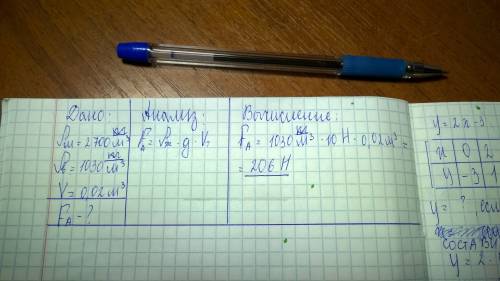 Дано:
ρт = 2700 кг/м³
ρж = 1030 кг/м³
V = 0,02 м³
FA - ?
Анализ:
FA = ρж · g · Vт
Вычисление:
FA = 1030 кг/м³ · 10 Н · 0,02 м³ =
= 206 Н
y = 2x - 3
x 0 2
y -3 1
y = ? , если
состави
y = 2 ·